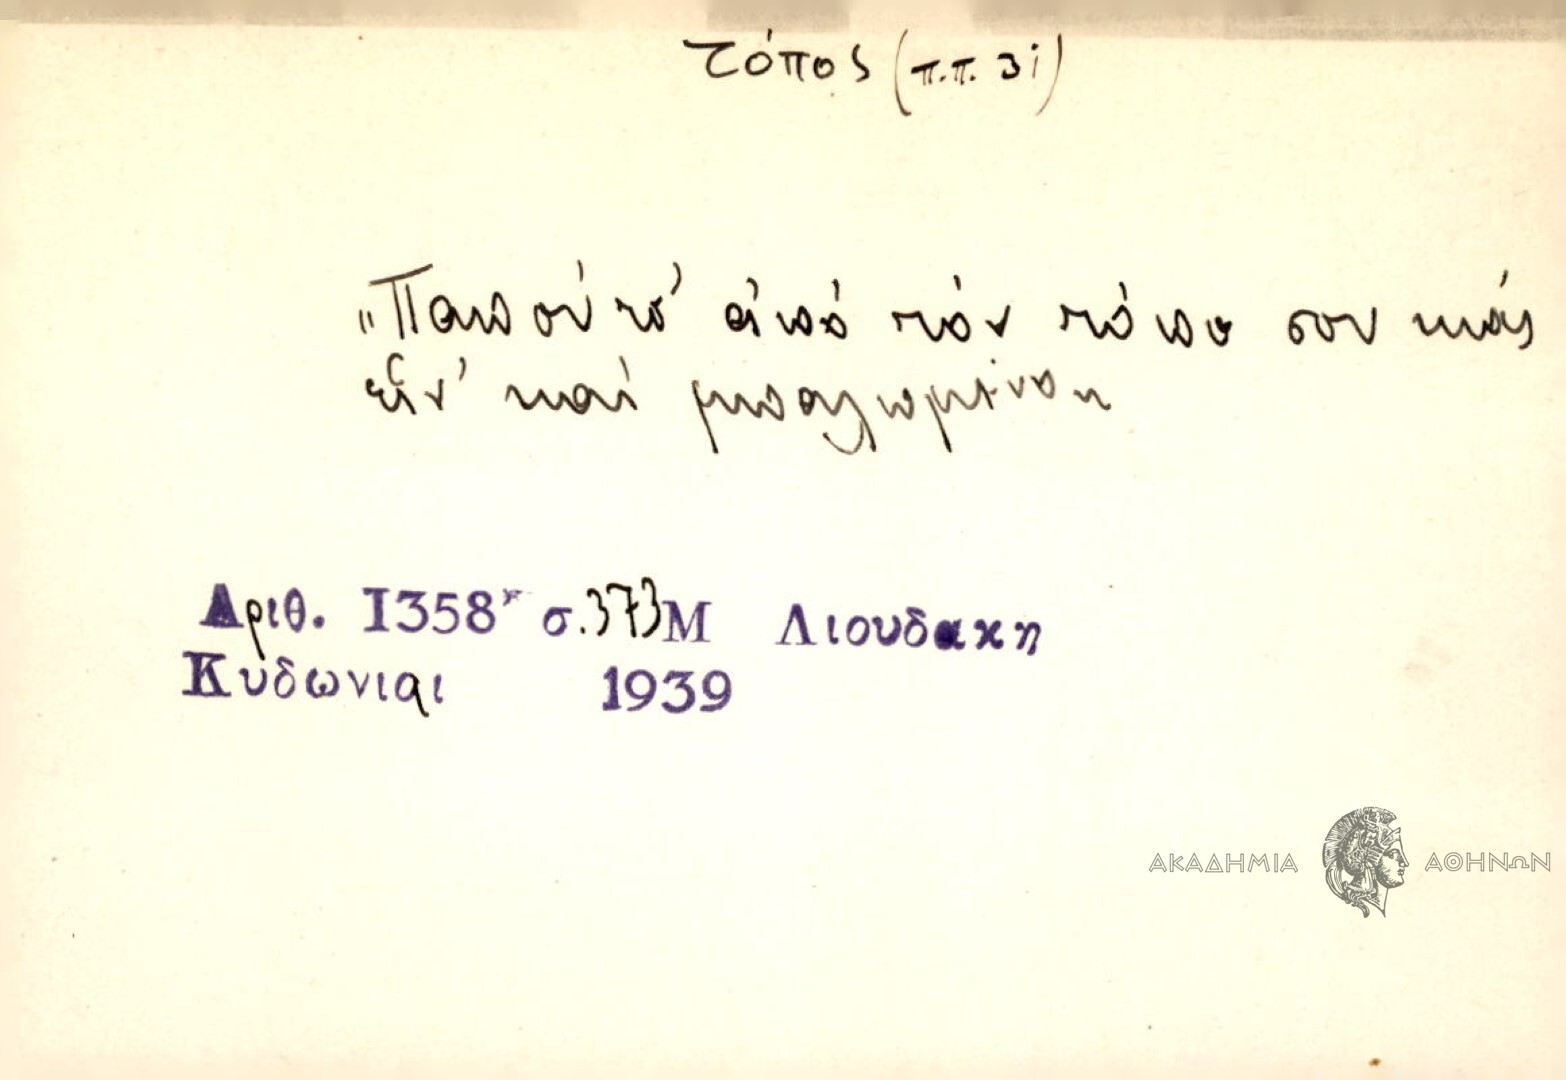 τόπος (π.π. 3i)
„Παπούτσ' ἀπό τόν τόπο σου κιάς
εἶν' καί μπαλωμένο
Αριθ. 1358 σ. 373 Μ Λιουδακη
Κυδωνιαι 1939
ΑΚΑΔΗΜΙΑ ΑΘΗΝΩΝ